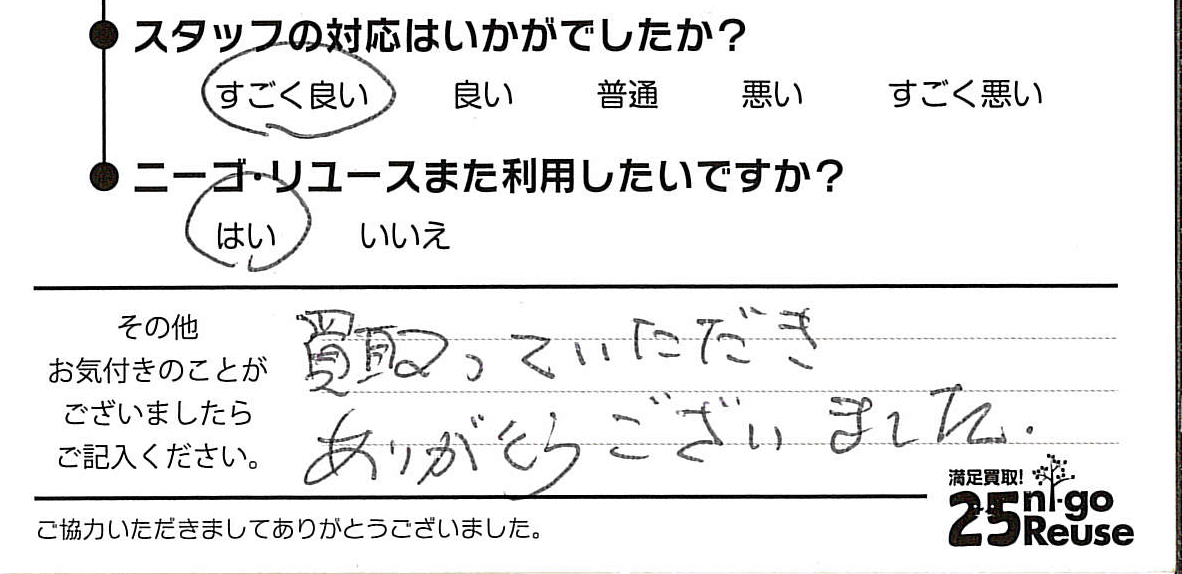 スタッフの対応はいかがでしたか?
すごく良い 良い 普通 悪い すごく悪い
ニーゴ・リユースまた利用したいですか?
はい いいえ
その他
お気付きのことが
ございましたら
ご記入ください。
買取っていただき
ありがとうございました.
満足買取!
25 ni-go
Reuse
ご協力いただきましてありがとうございました。